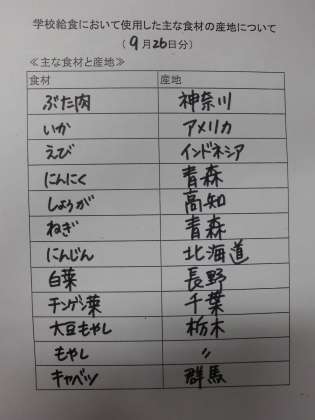 学校給食において使用した主な食材の産地について
(9月26日分)
≪主な食材と産地≫
食材 産地
ぶた肉 神奈川
いか アメリカ
えび インドネシア
にんにく 青森
しょうが 高知
ねぎ 青森
にんじん 北海道
白菜 長野
チンゲン菜 千葉
大豆もやし 栃木
もやし 〃
キャベツ 群馬